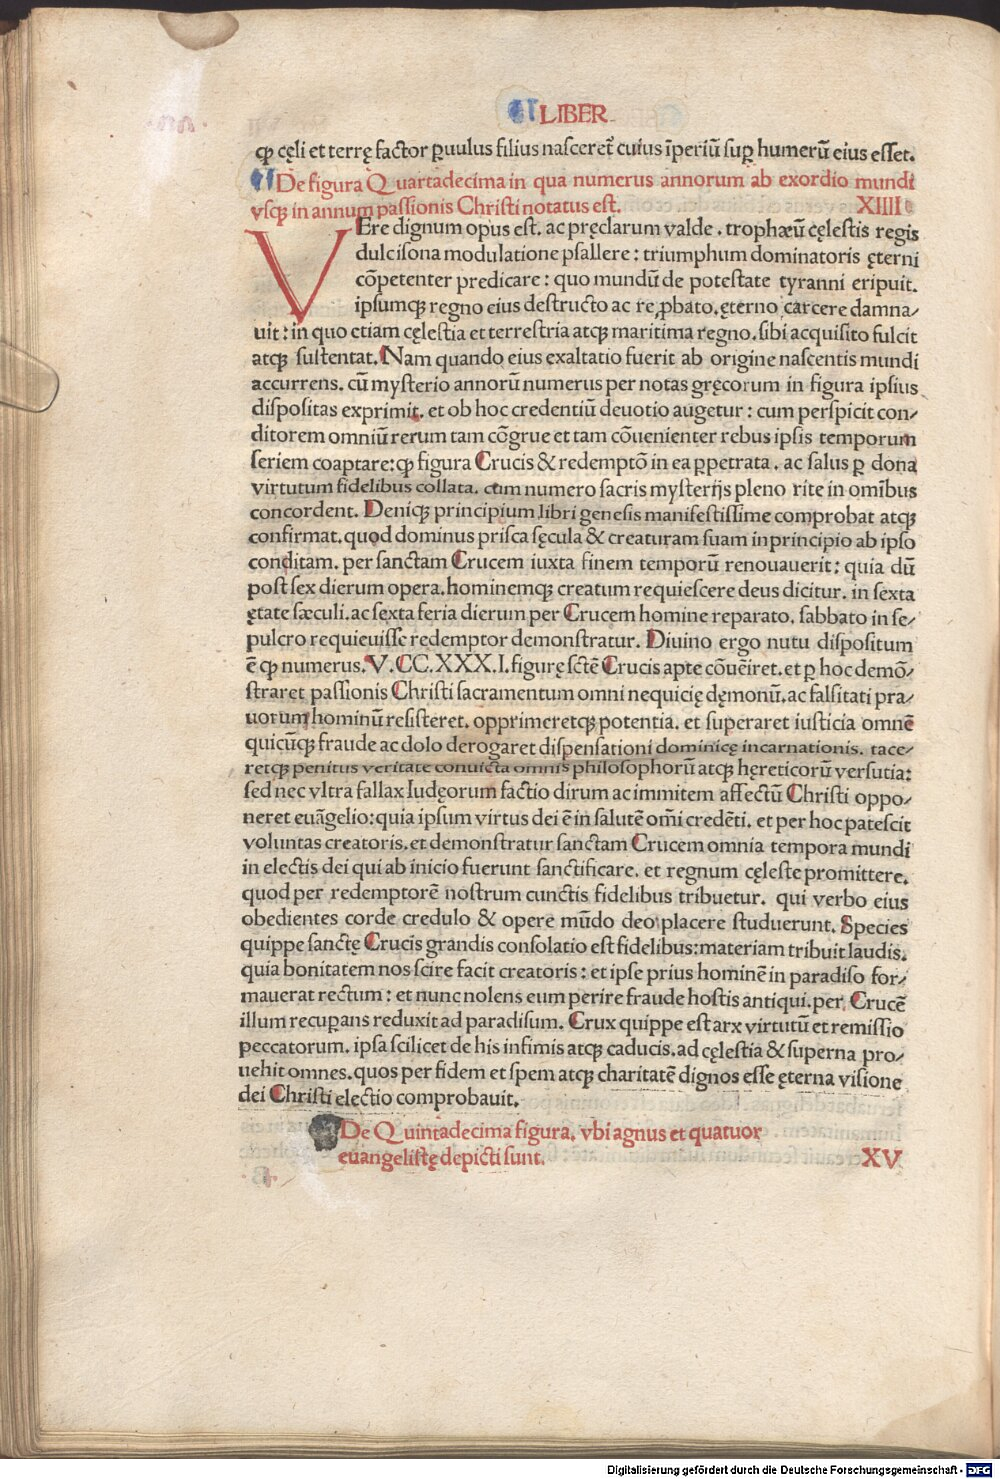 ¶ LIBER
ꝙ cęli et terrę factor ꝑuulus filius nasceret᷑ cuius īperiū suꝑ humerū eius esset.
¶ De figura Quartadecima in qua numerus annorum ab exordio mundi
vsqꝫ in annum passionis Christi notatus est. XIIII
VEre dignum opus est. ac pręclarum valde. trophæū cęlestis regis
dulcisona modulatione psallere: triumphum dominatoris ęterni
cōpetenter predicare: quo mundū de potestate tyranni eripuit.
ipsumqꝫ regno eius destructo ac reꝓbato. ęterno carcere damna/
uit: in quo etiam cęlestia et terrestria atqꝫ maritima regno. sibi acquisito fulcit
atqꝫ sustentat. Nam quando eius exaltatio fuerit ab origine nascentis mundi
accurrens. cū mysterio annorū numerus per notas gręcorum in figura ipsius
dispositas exprimit. et ob hoc credentiū deuotio augetur: cum perspicit con/
ditorem omniū rerum tam cōgrue et tam cōuenienter rebus ipsis temporum
seriem coaptare: ꝙ figura Crucis & redemptō in ea ꝑpetrata. ac salus ꝑ dona
virtutum fidelibus collata. cum numero sacris mysterijs pleno rite in omībus
concordent. Deniqꝫ principium libri genesis manifestissime comprobat atqꝫ
confirmat. quod dominus prisca sęcula & creaturam suam in principio ab ipso
conditam. per sanctam Crucem iuxta finem temporū renouauerit: quia dū
post sex dierum opera. hominemqꝫ creatum requiescere deus dicitur. in sexta
ętate sæculi. ac sexta feria dierum per Crucem homine reparato. sabbato in se/
pulcro requieuisse redemptor demonstratur. Diuino ergo nutu dispositum
ē ꝙ numerus. V. CC. XXX. I. figurę sctē Crucis apte cōuēiret. et ꝑ hoc demō/
straret passionis Christi sacramentum omni nequicię dęmonū. ac falsitati pra/
uorum hominū resisteret. opprimeretqꝫ potentia. et superaret iusticia omnē
quicūqꝫ fraude ac dolo derogaret dispensationi dominicę incarnationis. tace/
retqꝫ penitus veritate conuicta omnis philosophorū atqꝫ hęreticorū versutia:
sed nec vltra fallax Iudęorum factio dirum ac immitem affectū Christi oppo/
neret euāgelio: quia ipsum virtus dei ē in salutē om̄i credēti. et per hoc patescit
voluntas creatoris. et demonstratur sanctam Crucem omnia tempora mundi
in electis dei qui ab inicio fuerunt sanctificare. et regnum cęleste promittere.
quod per redemptorē nostrum cunctis fidelibus tribuetur. qui verbo eius
obedientes corde credulo & opere mūdo deo placere studuerunt. Species
quippe sanctę Crucis grandis consolatio est fidelibus: materiam tribuit laudis.
quia bonitatem nos scire facit creatoris: et ipse prius hominē in paradiso for/
mauerat rectum: et nunc nolens eum perire fraude hostis antiqui. per Crucē
illum recuꝑans reduxit ad paradisum. Crux quippe est arx virtutū et remissio
peccatorum. ipsa scilicet de his infimis atqꝫ caducis. ad cęlestia & superna pro/
uehit omnes. quos per fidem et spem atqꝫ charitatē dignos esse ęterna visione
dei Christi electio comprobauit.
De Quintadecima figura. vbi agnus et quatuor
euangelistę depicti sunt. XV
Digitalisierung gefördert durch die Deutsche Forschungsgemeinschaft - DFG